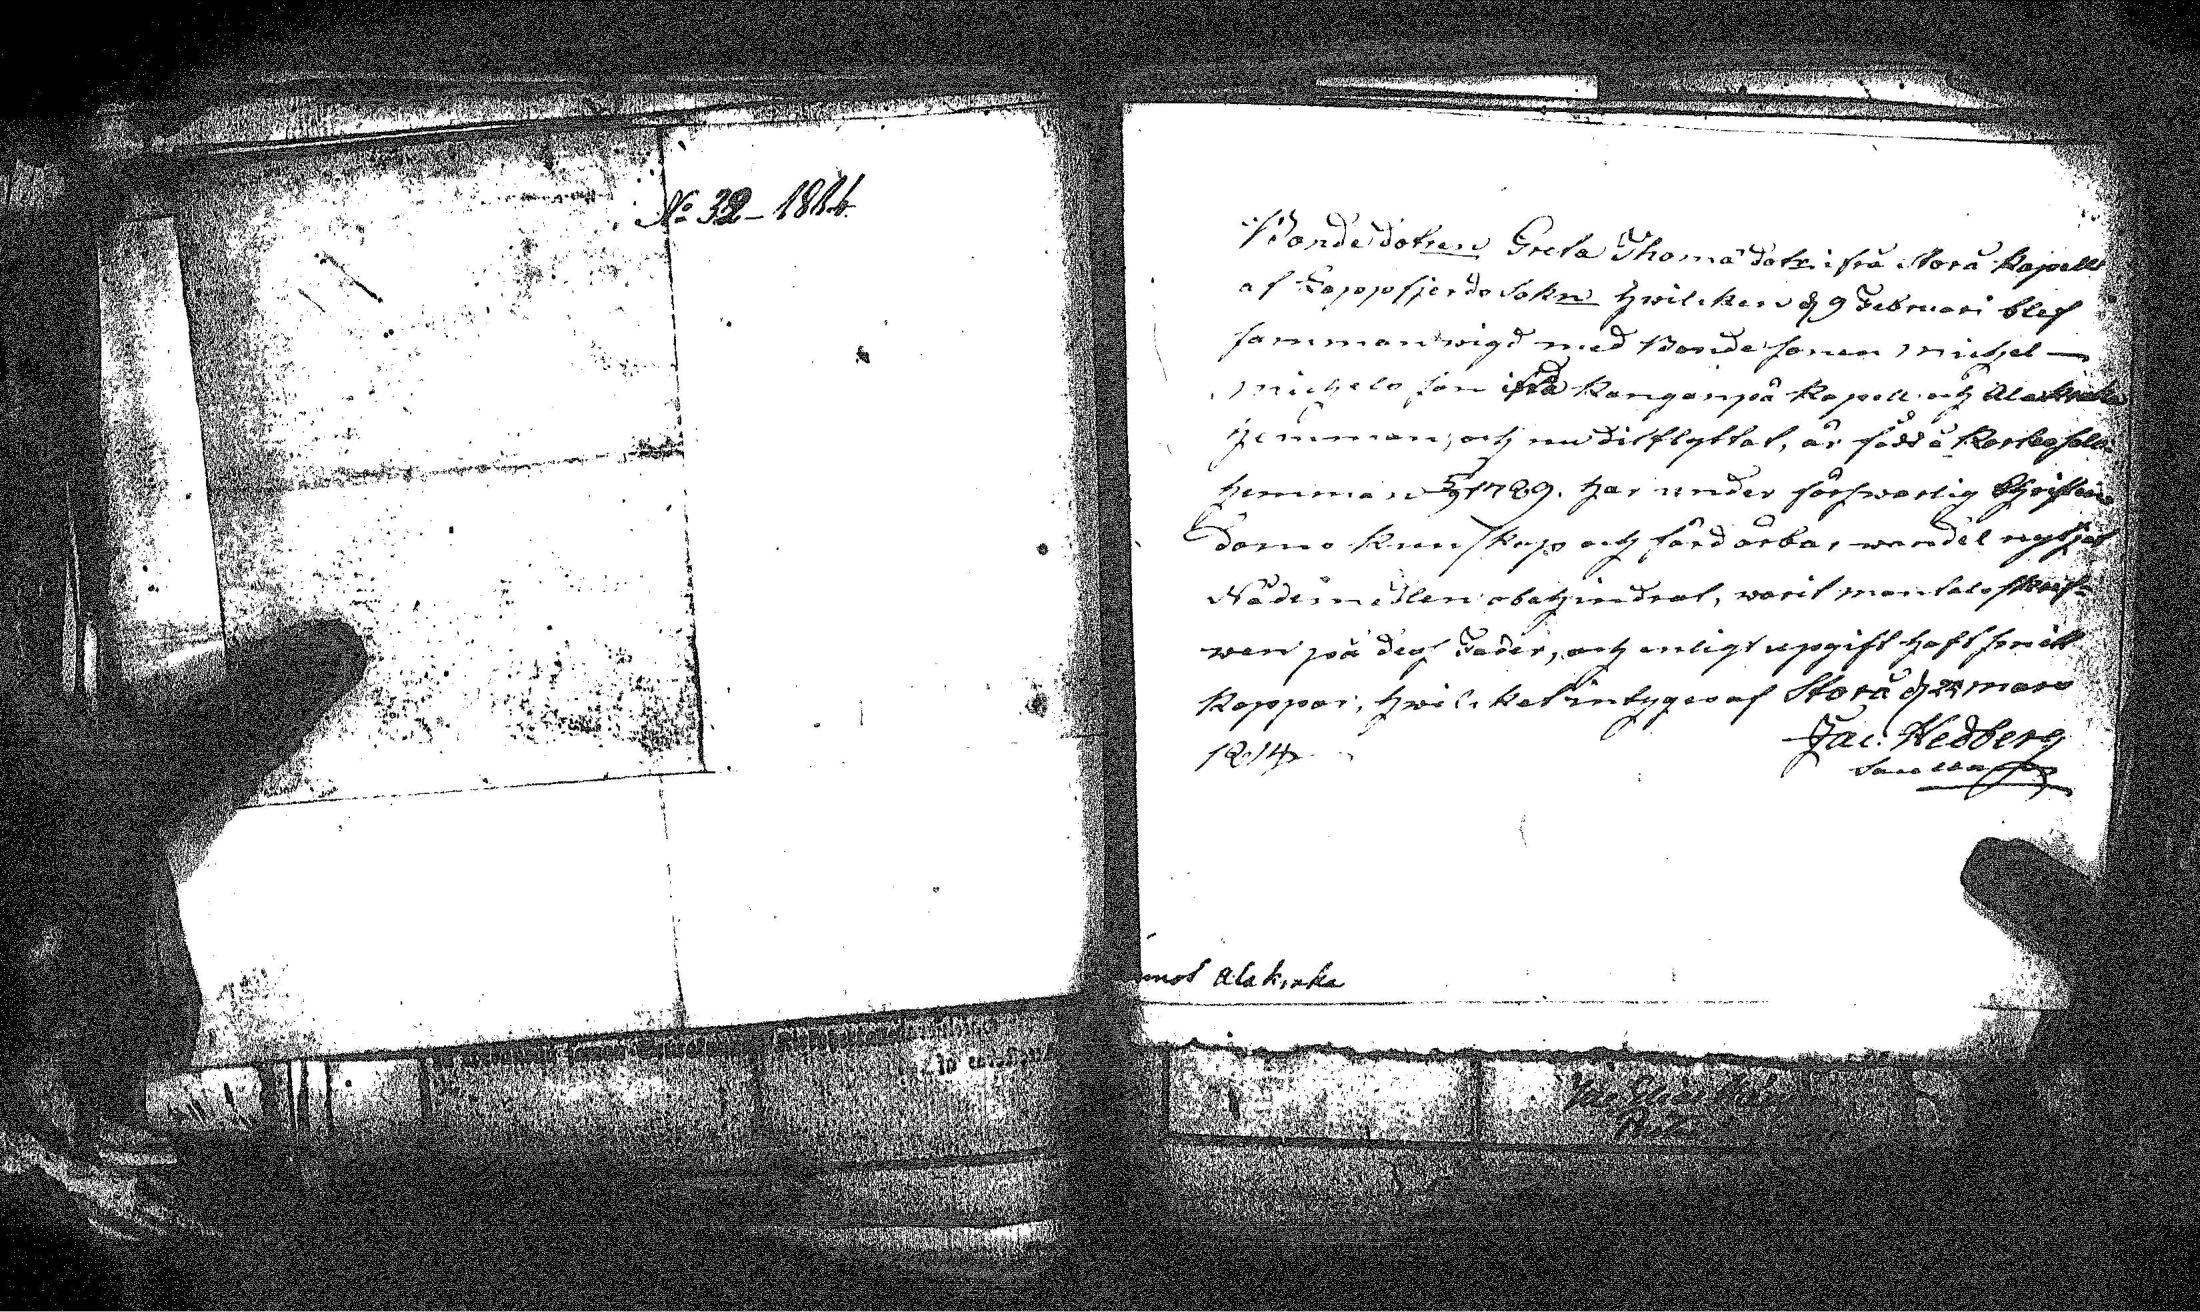 No 32 - 1814.
Bondedotren Greta Thomädotr ifrå Storå Kapell
af Lappfjerds Sokn hwilken d 9 Februari blef
sammanwigd med Bondesonen Michel
Michelsson ifrå Kanganpä Kapell och Alakraka
hemman, och nu ditflyttat, är född å
hemman 5/9 1789. har under förswarlig Christen-
doms Kunskap och ärbar wandel nytjat
Nådemedlen obehindrat, warit mantalsskref-
wen på dess Fader, och enligt upgift haft smitt
Koppor, hwilket intygas af Storå d 24 mars
1814.
Jac. Hedberg
not Alakraka